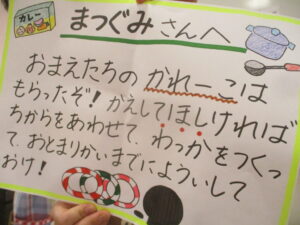 カレー
まつぐみさんへ
おまえたちの かれーこは
もらったぞ！かえしてほしければ
ちからをあわせて、わっかをつくっ
て、おとまりかいまでによういして
おけ！